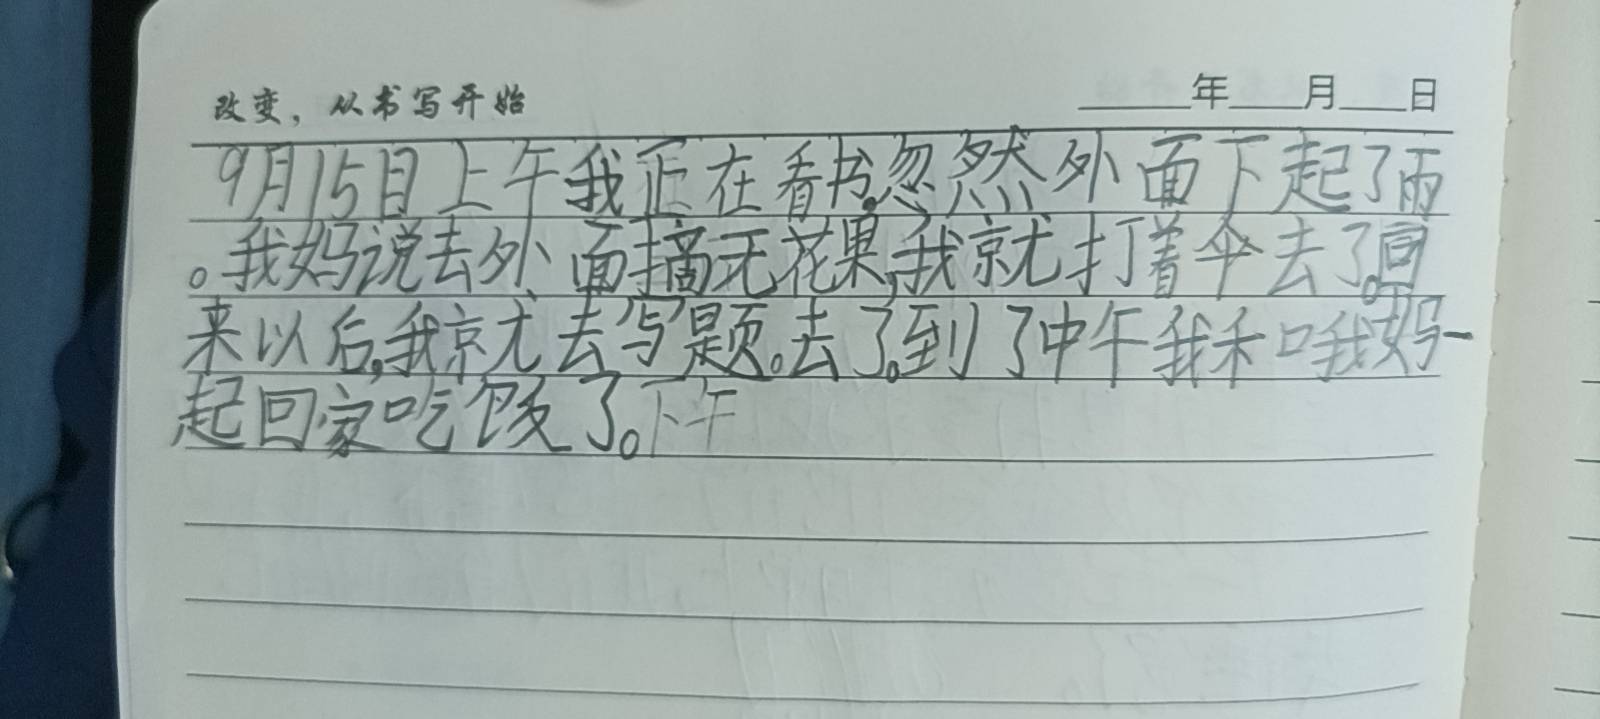 改变，从书写开始
____年____月____日
9月15日上午我正在看书。忽然外面下起了雨
。我妈说去外面摘无花果，我就打着伞去了。回
来以后，我就去写题。去了。到了中午我和我妈一
起回家吃饭了。下午